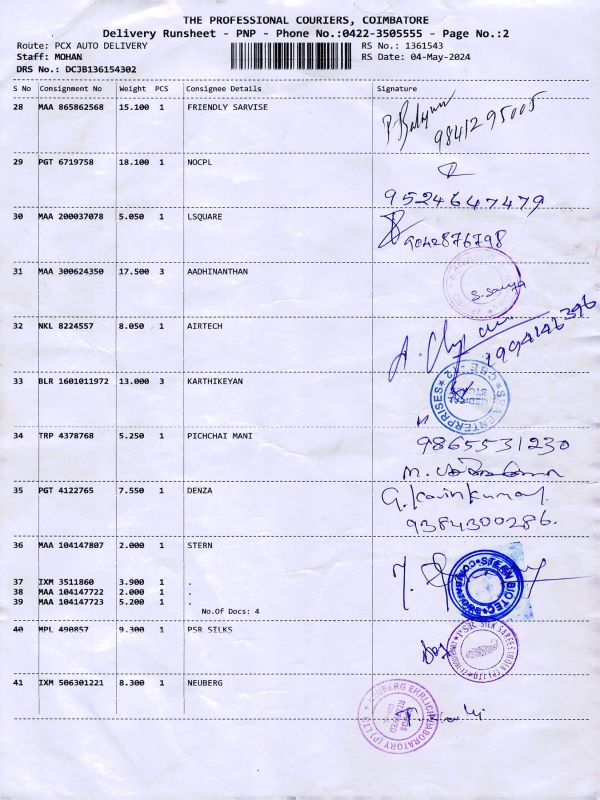 THE PROFESSIONAL COURIERS, COIMBATORE
Delivery Runsheet - PNP - Phone No.:0422-3505555 - Page No.:2
Route: PCX AUTO DELIVERY RS No.: 1361543
Staff: MOHAN RS Date: 04-May-2024
DRS No.: DCJB136154302
S No Consignment No Weight PCS Consignee Details Signature
28 MAA 865862568 15.100 1 FRIENDLY SARVISE
9841295005
29 PGT 6719758 18.100 1 NOCPL
9524647479
30 MAA 200037078 5.050 1 LSQUARE
9042876798
31 MAA 300624350 17.500 3 AADHINANTHAN
32 NKL 8224557 8.050 1 AIRTECH
33 BLR 1601011972 13.000 3 KARTHIKEYAN
ENTERPRISES
MEDICAL
34 TRP 4378768 5.250 1 PICHCHAI MANI
9865531230
35 PGT 4122765 7.550 1 DENZA
G. Kavinkumar.
9384300286.
36 MAA 104147807 2.000 1 STERN
STERN BIOTEC
37 IXM 3511860 3.900 1 .
38 MAA 104147722 2.000 1 .
39 MAA 104147723 5.200 1 .
No.Of Docs: 4
40 MPL 490857 9.300 1 PSR SILKS
PSR SILK SAREES INDIA (P) LTD
41 IXM 506301221 8.300 1 NEUBERG
NEUBERG EHRLICH LABORATORY (P) LTD